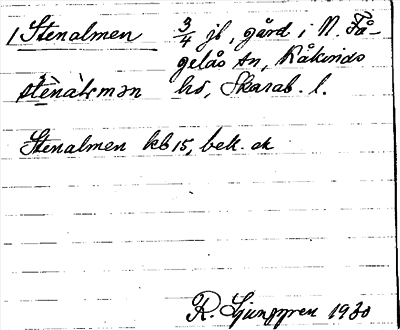 1 Stenalmen 3/4 jb, gård i N. Få-
gelås sn, Kåkinds
hd, Skarab. l.
Stenalmen kb 15, bek. ek
R. Ljunggren 1930